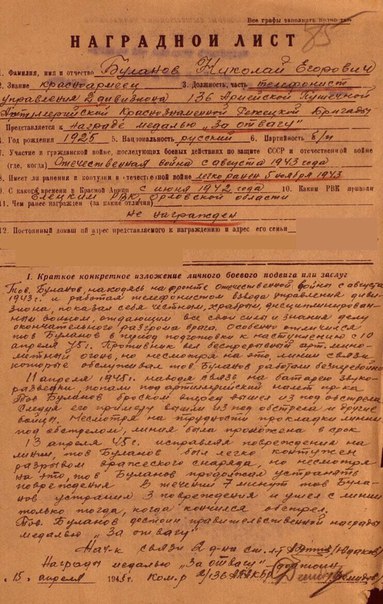 Все графы заполнять полностью
85
НАГРАДНОЙ ЛИСТ
1. Фамилия, имя и отчество Буланов Николай Егорович
2. Звание красноармеец 3. Должность, часть телефонист
управления 2 дивизиона 136 Армейской Пушечной
Артиллерийской Краснознаменной Режецкой Бригады
Представляется к Награде медалью "За отвагу"
4. Год рождения 1925 5. Национальность русский 6. Партийность б/п
7. Участие в гражданской войне, последующих боевых действиях по защите СССР и отечественной войне
(где, когда) Отечественная война с августа 1943 года
8. Имеет ли ранения и контузии в отечественной войне легко ранен 5 ноября 1943
9. С какого времени в Красной Армии с июня 1942 года 10. Каким РВК призван
Елецким РВК, Орловской области
11. Чем ранее награжден (за какие отличия)
Не награжден
12. Постоянный домашний адрес представляемого к награждению и адрес его семьи
I. Краткое конкретное изложение личного боевого подвига или заслуг
Тов. Буланов, находясь на фронте Отечественной войны с августа
1943г. и работая телефонистом взвода управления диви-
зиона, показал себя честным, храбрым, дисциплинирован-
ным воином, отдающим все свои силы и знания делу
окончательного разгрома врага. Особенно отличился
тов. Буланов в период подготовки к наступлению с 10
апреля 45г. Противник вел беспрерывный арт. мино-
метный огонь, но несмотря на это, линия связи,
которые обслуживал тов. Буланов работали безперебойно
11 апреля 1945г. наводя связь на батарею звуко-
разведки, попали под артиллерийский налет врага.
Тов. Буланов броском вперед вышел из под обстрела
Следуя его примеру вышли из под обстрела и другие
бойцы. Несмотря на трудности прокладки линии
под обстрелом, линия была проложена в срок
13 апреля 45г. исправляя повреждения на
линии, тов Буланов был легко контужен
разрывом вражеского снаряда, но несмотря
на это, тов. Буланов продолжал устранять
повреждения. В течении 7 минут тов Була-
нов устранил 3 повреждения и ушел с линии
только тогда, когда кончился обстрел.
Тов. Буланов достоин правительственной награды
медалью "За отвагу"
Нач-к связи 2 д-на ст. л-т
Награды медалью "За отвагу" достоин
"15" апреля 1945г. Ком-р 2/136